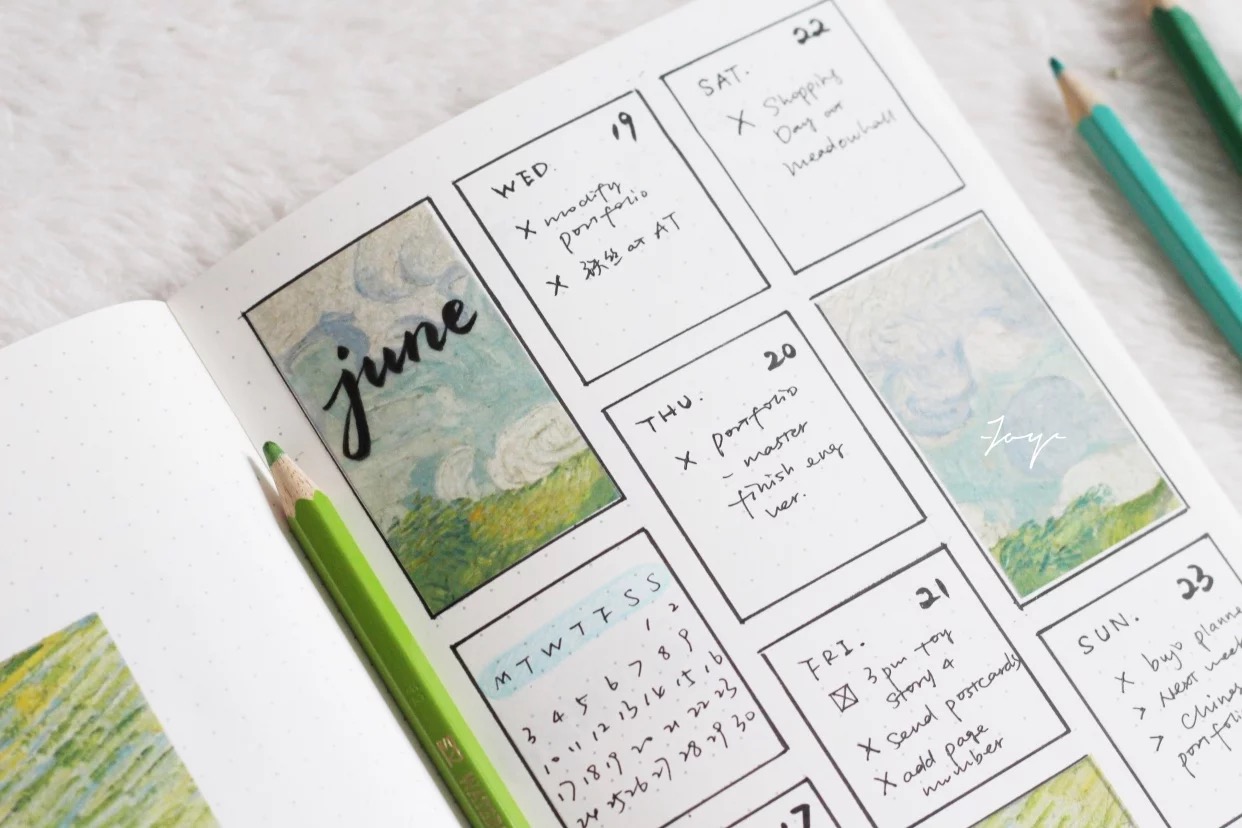 june
M T W T F S S
1 2
3 4 5 6 7 8 9
10 11 12 13 14 15 16
17 18 19 20 21 22 23
24 25 26 27 28 29 30
17
19
WED.
X modify
portfolio
X 铁丝 at AT
20
THU.
X portfolio
- master
finish eng
ver.
21
FRI.
3pm toy
story 4
X send postcards
X add page
number
22
SAT.
X Shopping
Day at
meadowhall
23
SUN.
X bujo planne
> Next week
> Chines
portfoli